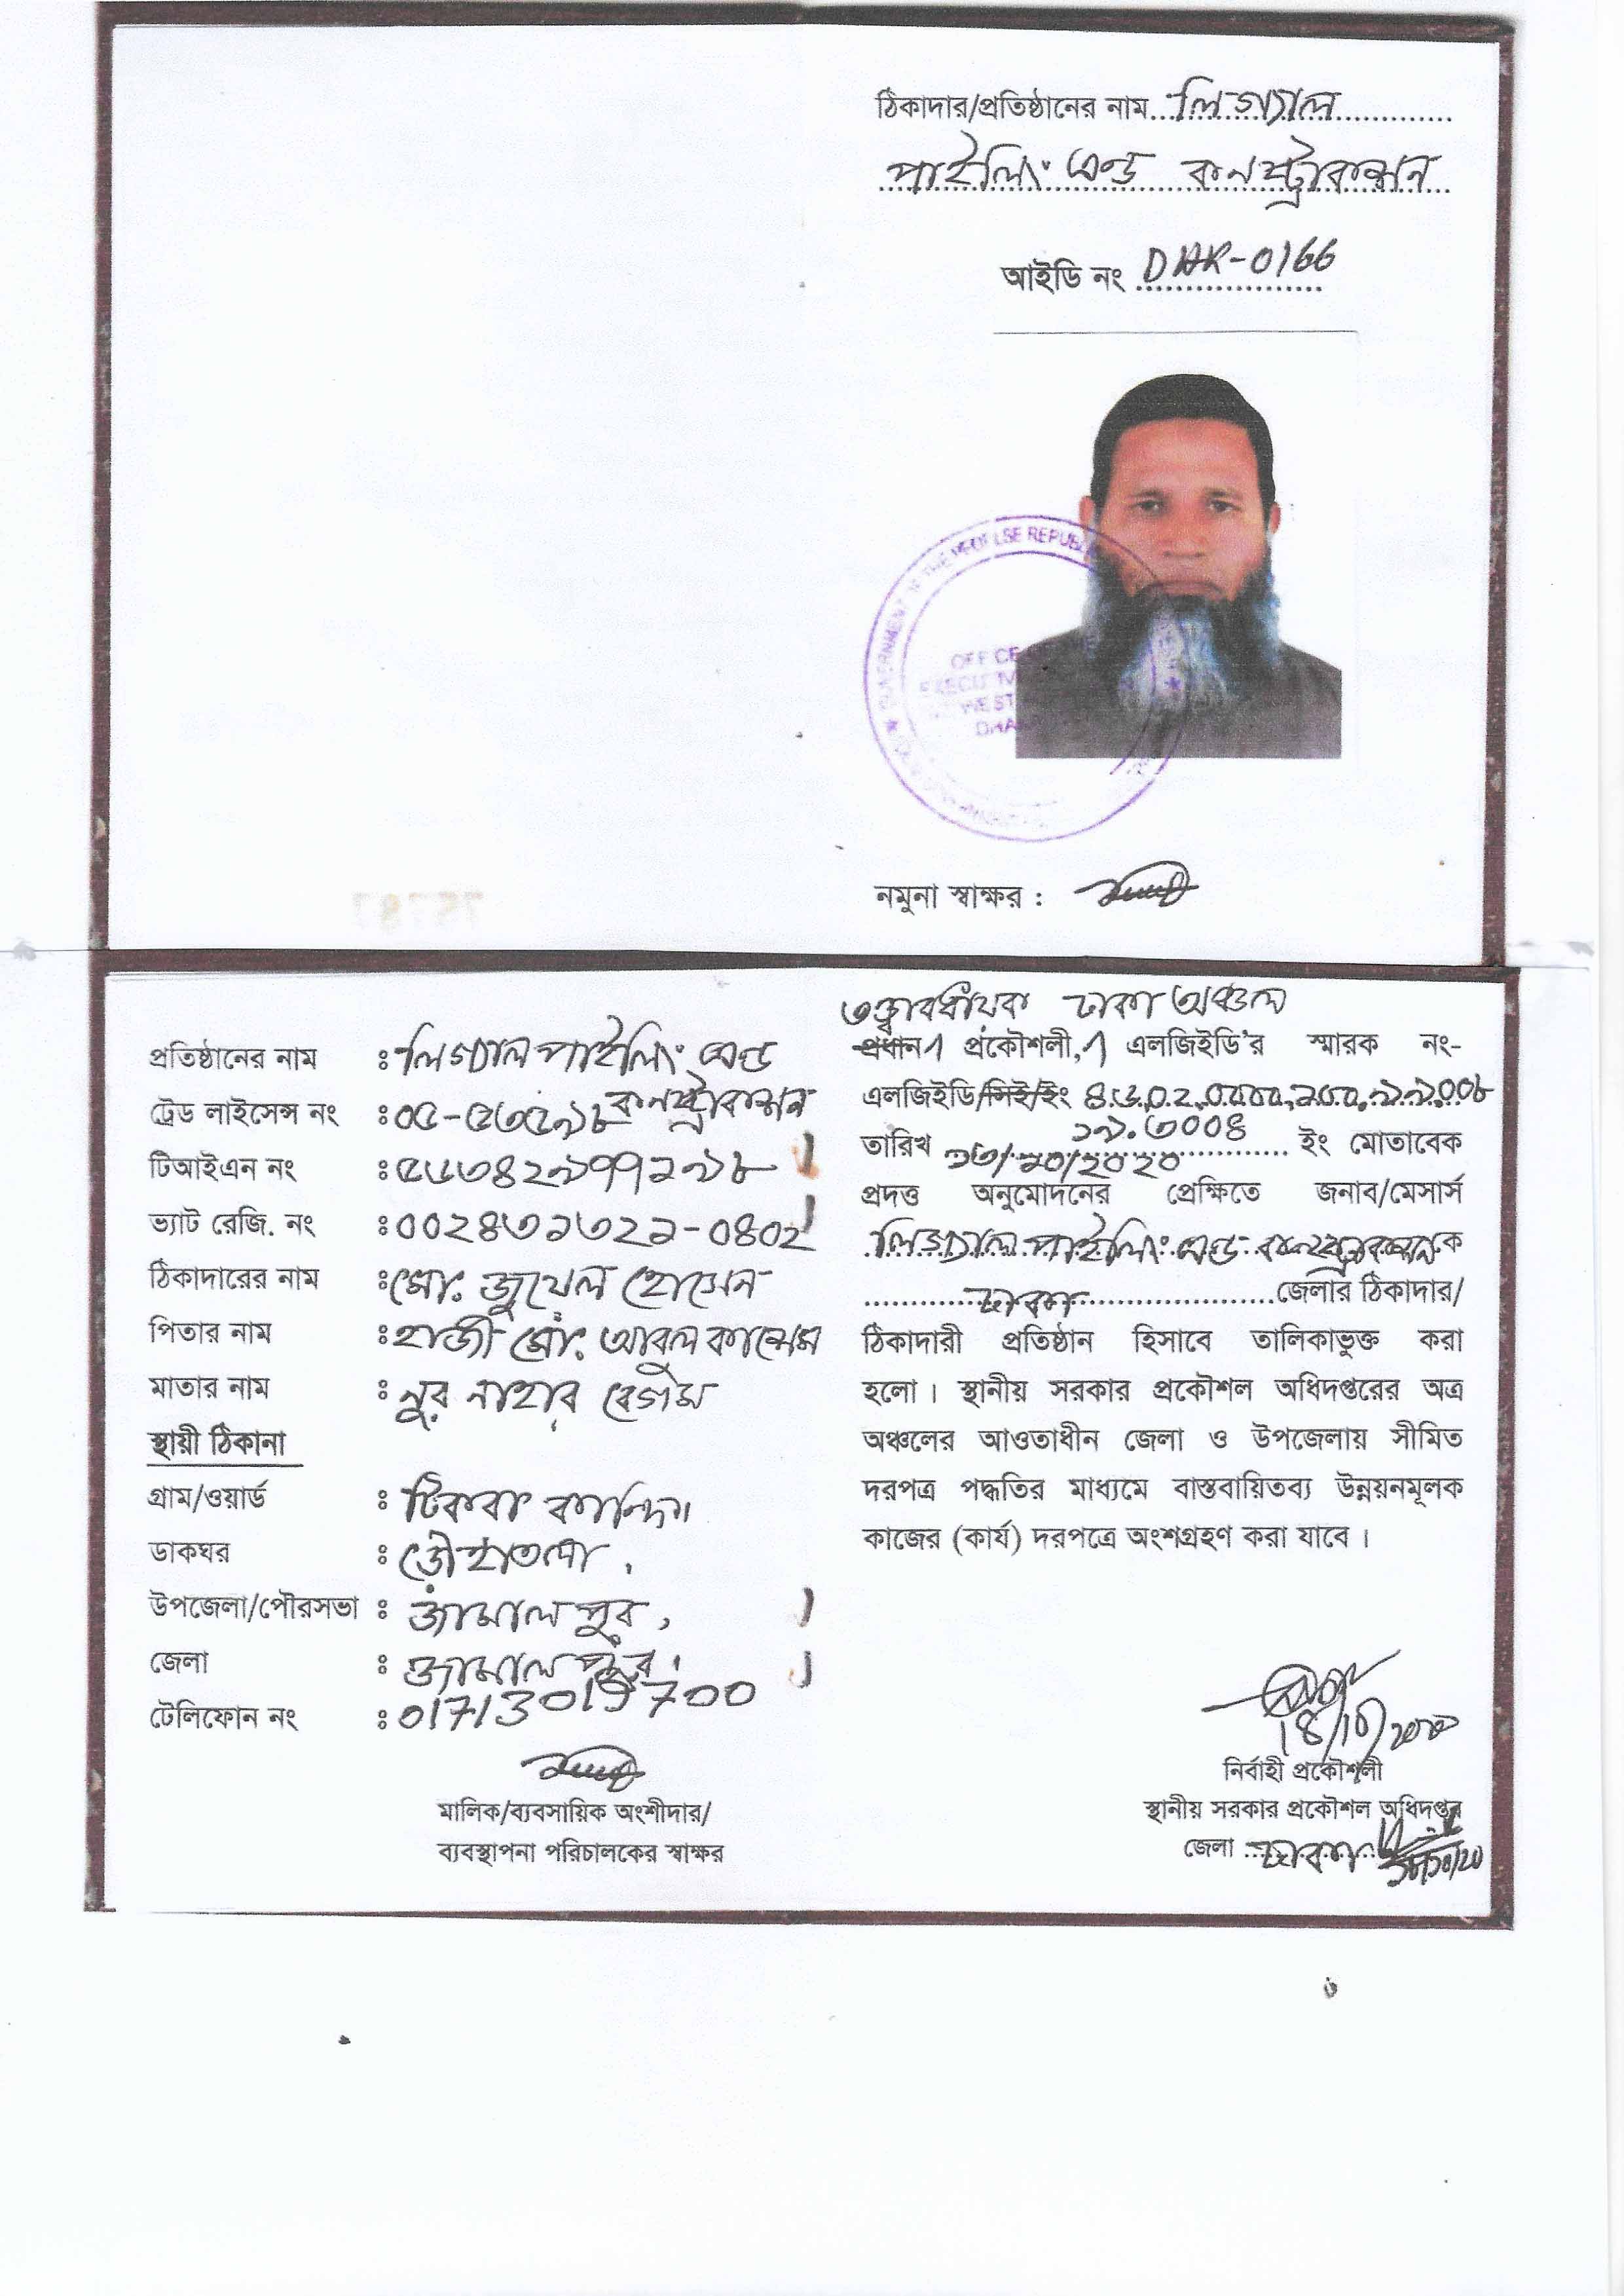 ঠিকাদার/প্রতিষ্ঠানের নাম লিগ্যাল
পাইলিং এন্ড কনস্ট্রাকশন
আইডি নং DHK-0166
GOVERNMENT REPUBLIC
OFFICE
EXECUTIVE
WEST
DHAKA
নমুনা স্বাক্ষর :
প্রতিষ্ঠানের নাম : লিগ্যাল পাইলিং এন্ড
কনস্ট্রাকশন
ট্রেড লাইসেন্স নং : ০৫-৫৩৫৯৮
টিআইএন নং : ৫৬৩৪২৯৭৭১৯৮
ভ্যাট রেজি. নং : ০০২৪৩১৩২১-০৪০২
ঠিকাদারের নাম : মো. জুয়েল হোসেন
পিতার নাম : হাজী মো. আবুল কাশেম
মাতার নাম : নুর নাহার বেগম
স্থায়ী ঠিকানা
গ্রাম/ওয়ার্ড :
ডাকঘর :
উপজেলা/পৌরসভা : জামালপুর,
জেলা : জামালপুর।
টেলিফোন নং : 01713015700
মালিক/ব্যবসায়িক অংশীদার/
ব্যবস্থাপনা পরিচালকের স্বাক্ষর
তত্ত্বাবধায়ক ঢাকা অঞ্চল
প্রধান প্রকৌশলী, এলজিইডি'র স্মারক নং-
এলজিইডি/সিই/ইং ৪৬.০২.০০০০.২০০.৯৯.০০৮
১৯.৩০০৪
তারিখ ১৩/১০/২০২০ ইং মোতাবেক
প্রদত্ত অনুমোদনের প্রেক্ষিতে জনাব/মেসার্স
লিগ্যাল পাইলিং এন্ড কনস্ট্রাকশন কে
ঢাকা জেলার ঠিকাদার/
ঠিকাদারী প্রতিষ্ঠান হিসাবে তালিকাভুক্ত করা
হলো। স্থানীয় সরকার প্রকৌশল অধিদপ্তরের অত্র
অঞ্চলের আওতাধীন জেলা ও উপজেলায় সীমিত
দরপত্র পদ্ধতির মাধ্যমে বাস্তবায়িতব্য উন্নয়নমূলক
কাজের (কার্য) দরপত্রে অংশগ্রহণ করা যাবে।
নির্বাহী প্রকৌশলী
স্থানীয় সরকার প্রকৌশল অধিদপ্তর
জেলা ঢাকা